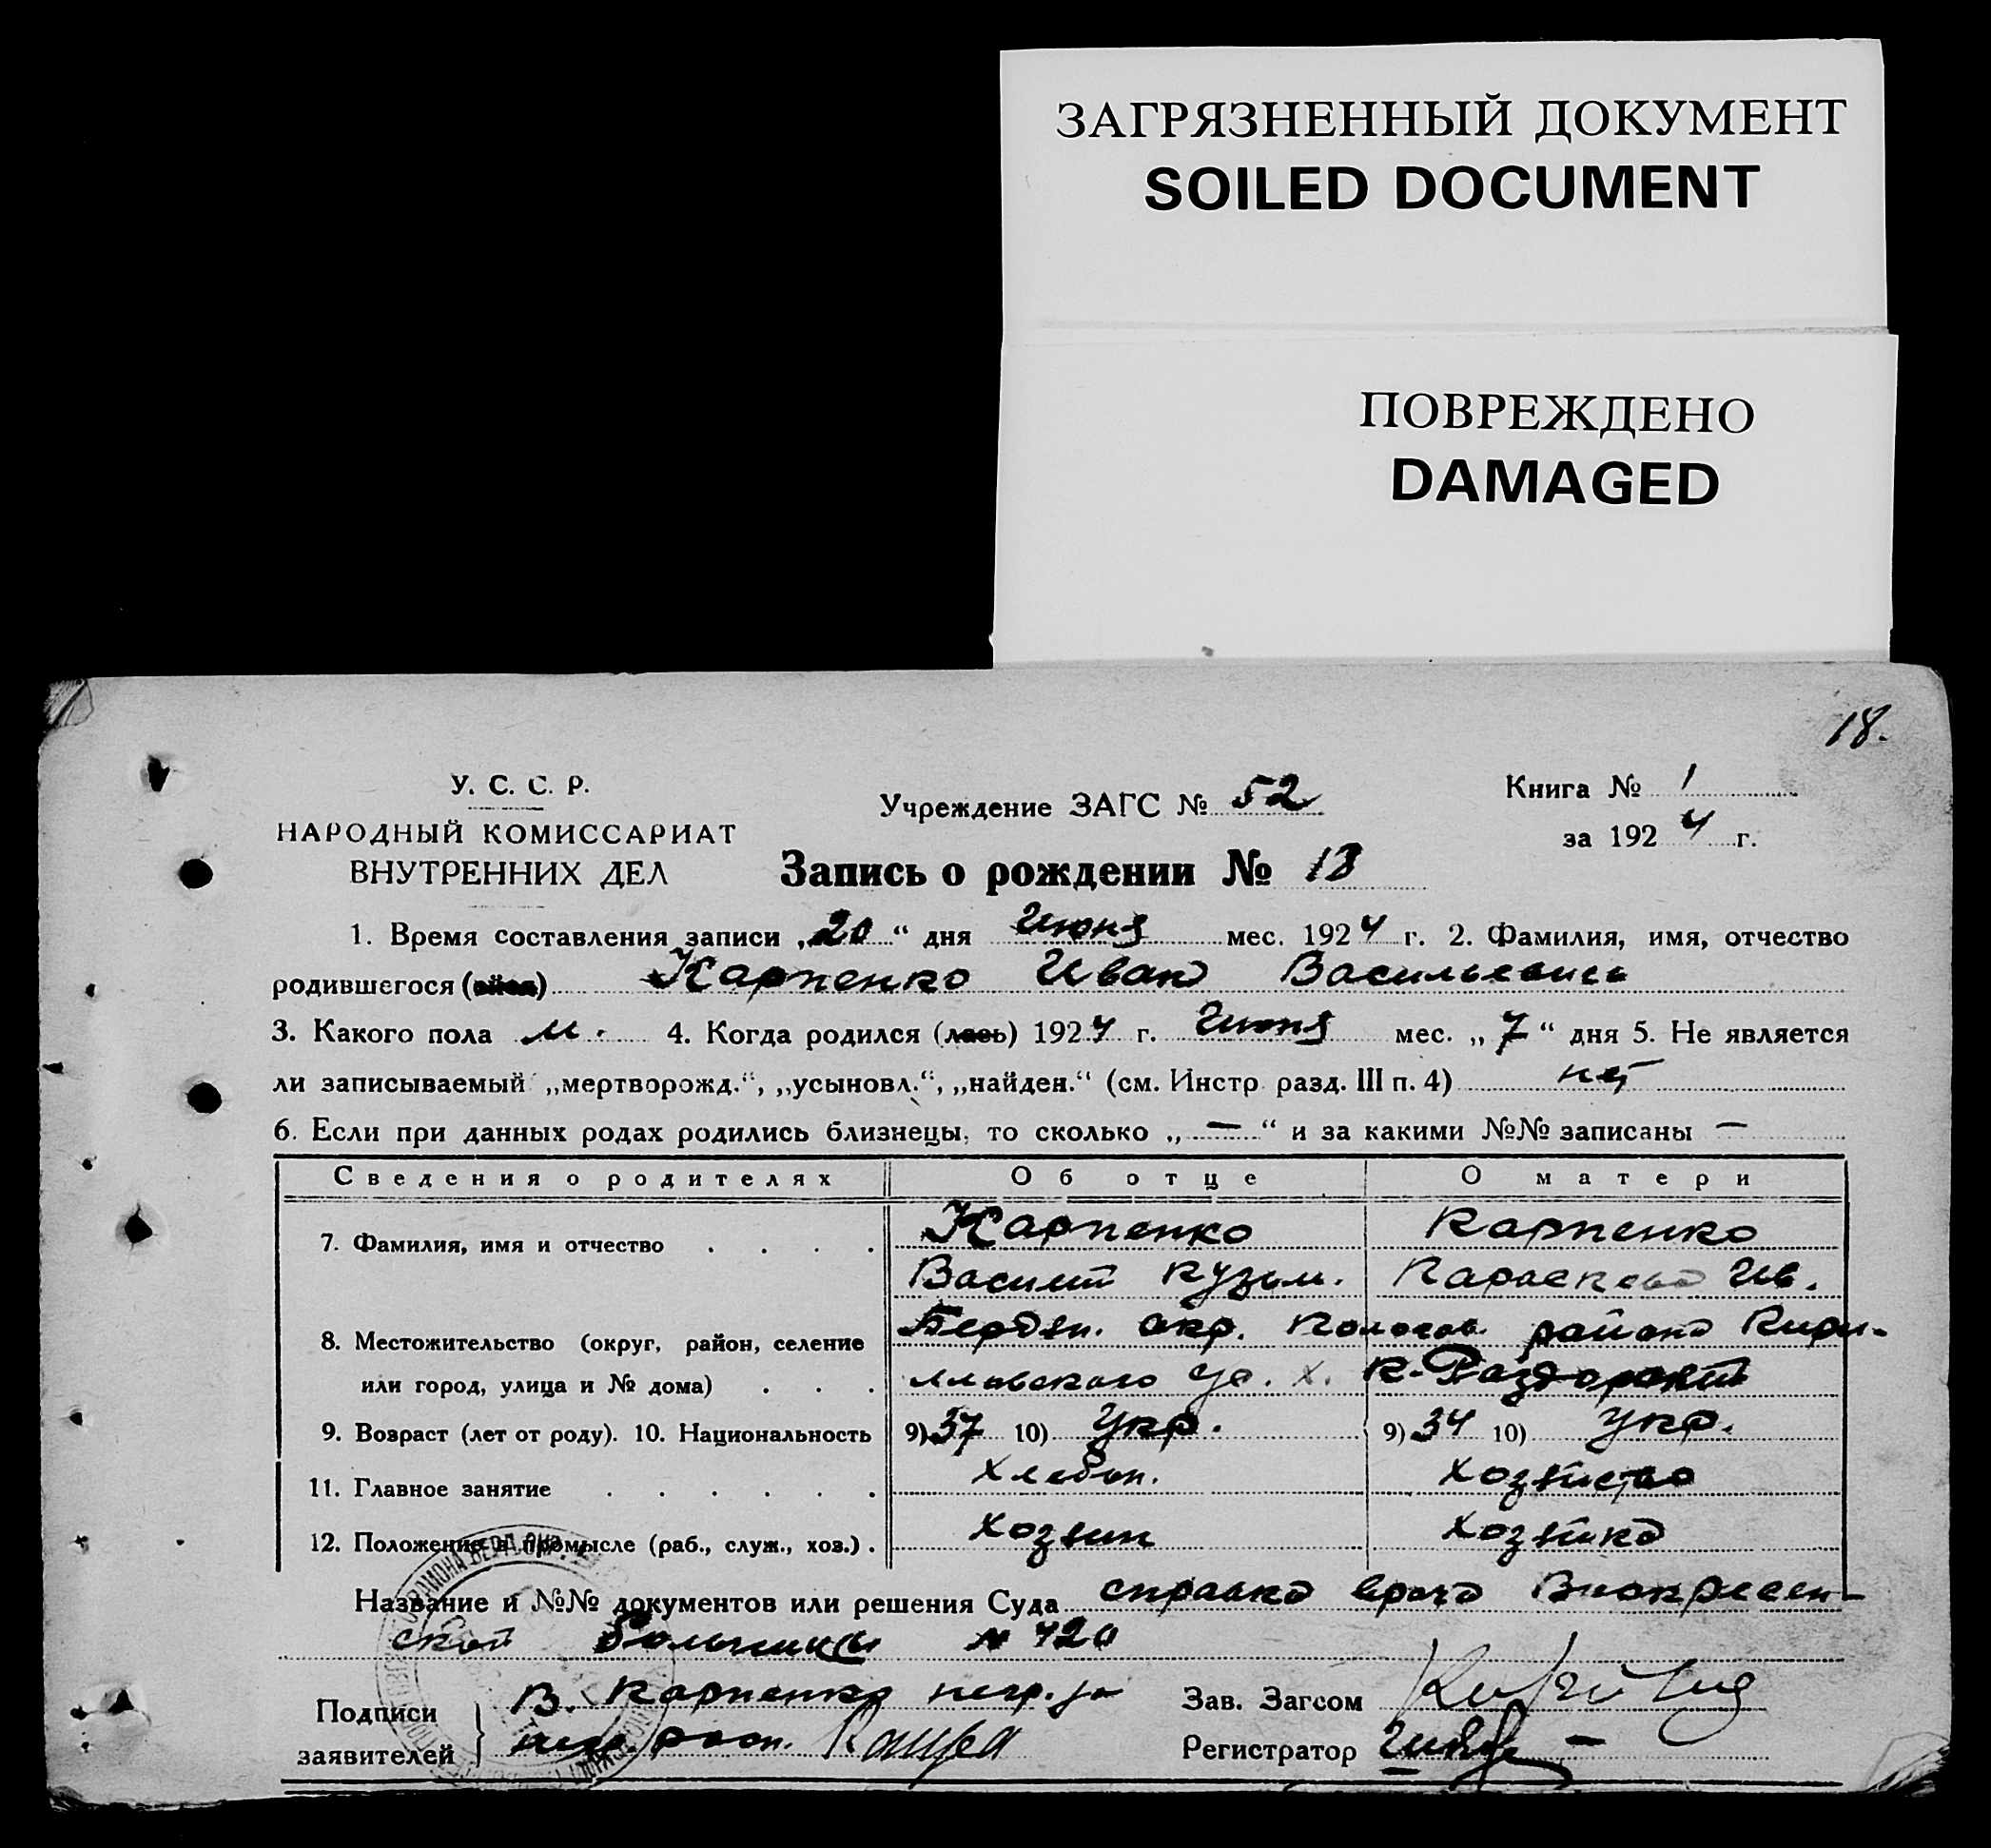 ЗАГРЯЗНЕННЫЙ ДОКУМЕНТ
SOILED DOCUMENT
ПОВРЕЖДЕНО
DAMAGED
18.
У. С. С. Р.
НАРОДНЫЙ КОМИССАРИАТ
ВНУТРЕННИХ ДЕЛ
Учреждение ЗАГС № 52
Книга № 1
за 1924 г.
Запись о рождении № 18
1. Время составления записи „20“ дня Июня мес. 1924 г. 2. Фамилия, имя, отчество
родившегося Карпенко Иван Васильевич
3. Какого пола м. 4. Когда родился (лась) 1924 г. Июня мес. „7“ дня 5. Не является
ли записываемый „мертворожд.“, „усыновл.“, „найден.“ (см. Инстр разд. III п. 4) нет
6. Если при данных родах родились близнецы, то сколько „—“ и за какими №№ записаны —
Сведения о родителях Об отце О матери
7. Фамилия, имя и отчество . . . . Карпенко Карпенко
Василий Кузьм. Параскева Ив.
8. Местожительство (округ, район, селение Бердян. окр. района Кири-
или город, улица и № дома) . . . лловского х.
9. Возраст (лет от роду). 10. Национальность 9) 37 10) Укр. 9) 34 10) Укр.
11. Главное занятие . . . . . . Хлебоп. Хозяйство
12. Положение в промысле (раб., служ., хоз.) . Хозяин Хозяйка
Название и №№ документов или решения Суда справка врача Воскресен-
ской больницы № 420
Подписи
заявителей
В. Карпенко негр. за
Зав. Загсом
Регистратор